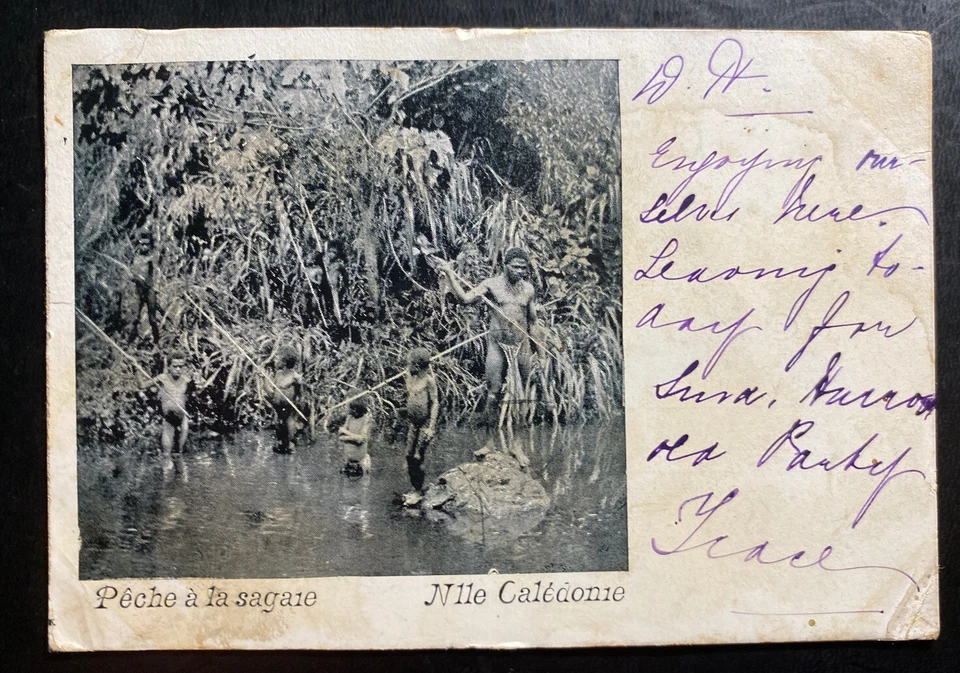 D. H.
Enjoying our-
selves here.
Leaving to-
day for
Suva. Hurrow
old Party
Grace
Pêche à la sagaie
Nlle Calédonie